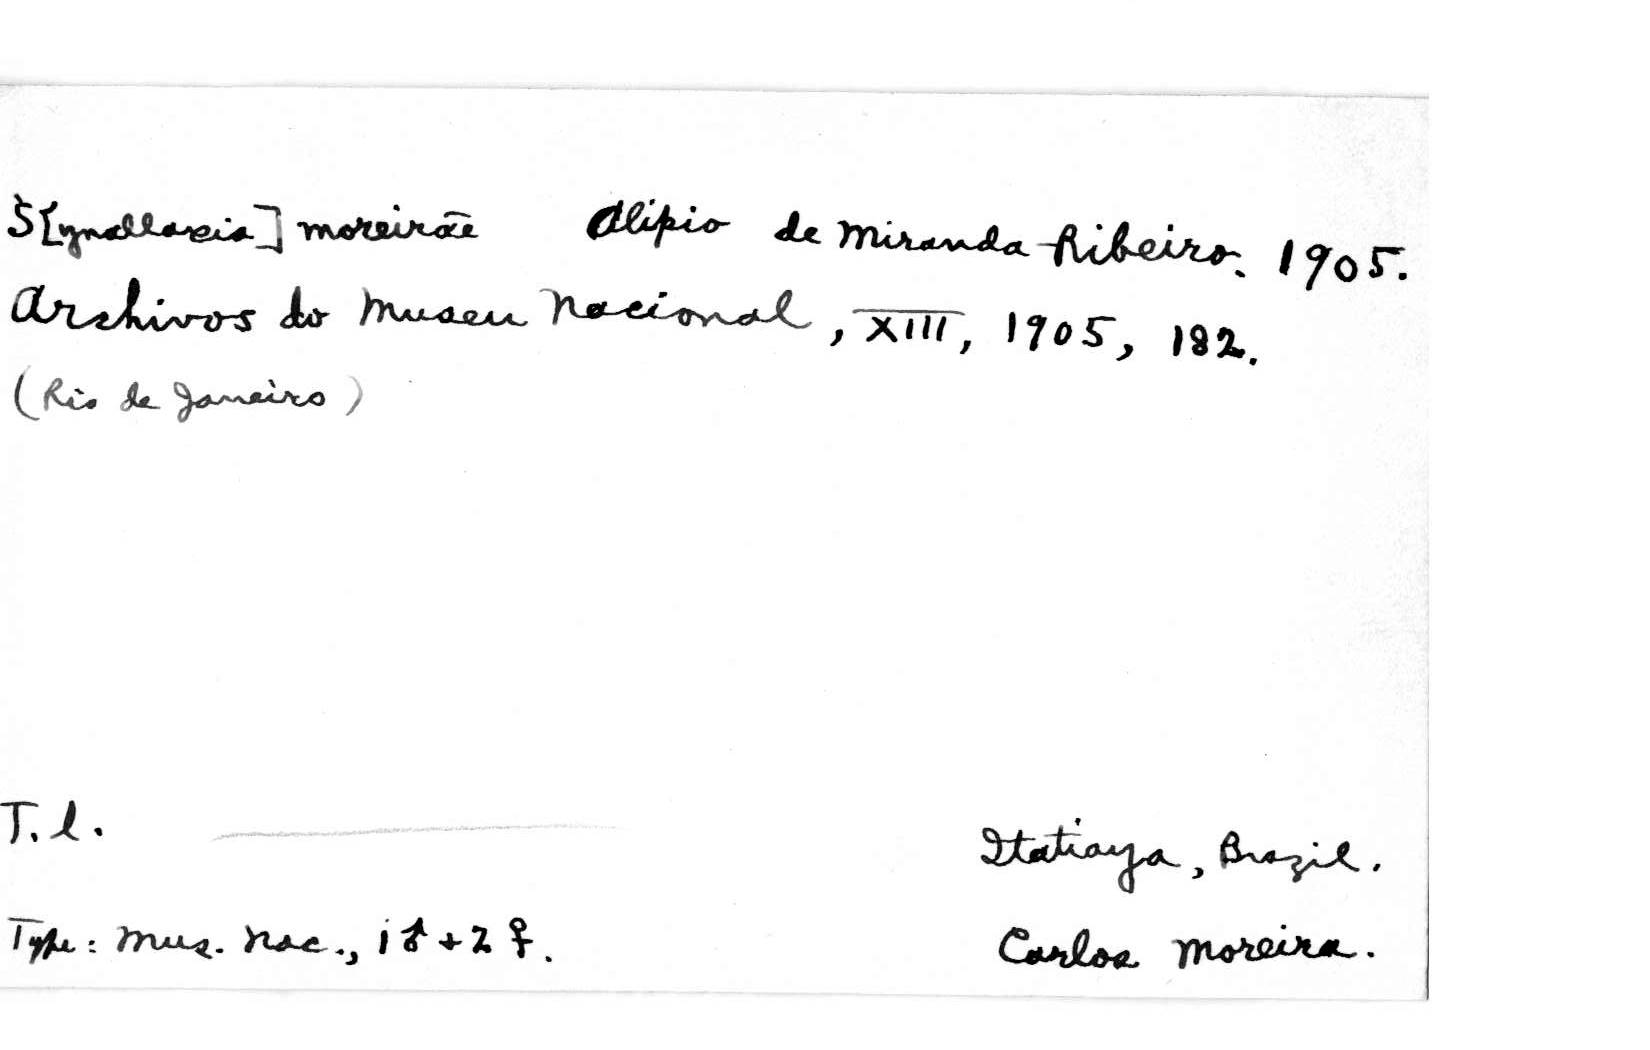 S[ynallaxis] moreiræ Alipio de Miranda-Ribeiro. 1905.
Archivos do Museu Nacional, XIII, 1905, 182.
(Rio de Janeiro)
T. l. Itatiaya, Brazil.
Type: Mus. Nac., 1 ♂ + 2 ♀. Carlos Moreira.